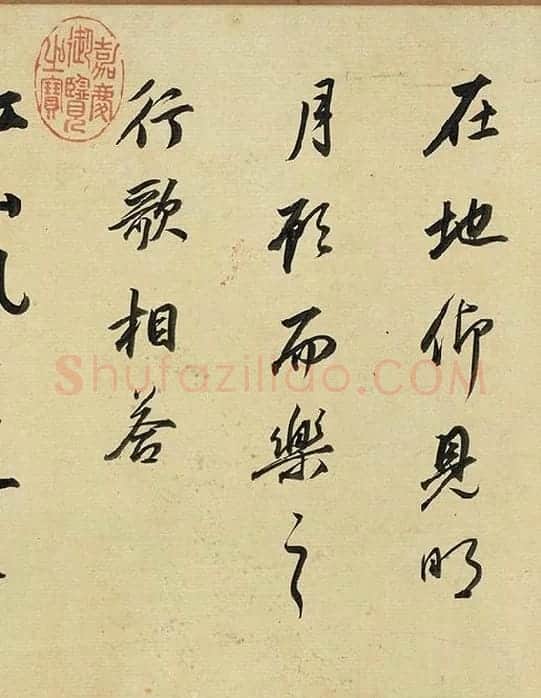 在地仰見明
月顧而樂之
行歌相答
嘉慶御覽之寶
Shufaziliao.COM